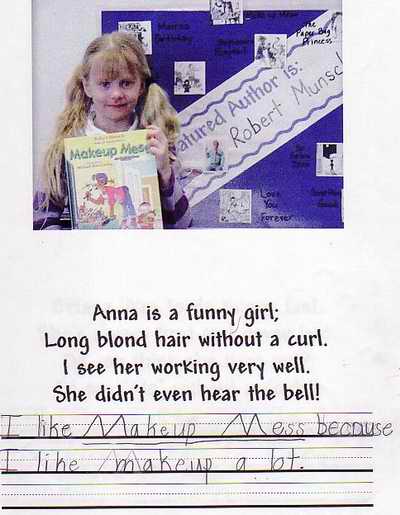 Makeup Mess
Featured Author is:
Robert Munsc
Moira's
Birthday
The
Paper Bag
Princess
Love
You
Forever
Makeup Mess
Anna is a funny girl;
Long blond hair without a curl.
I see her working very well.
She didn't even hear the bell!
I like Makeup Mess because
I like makeup a lot.